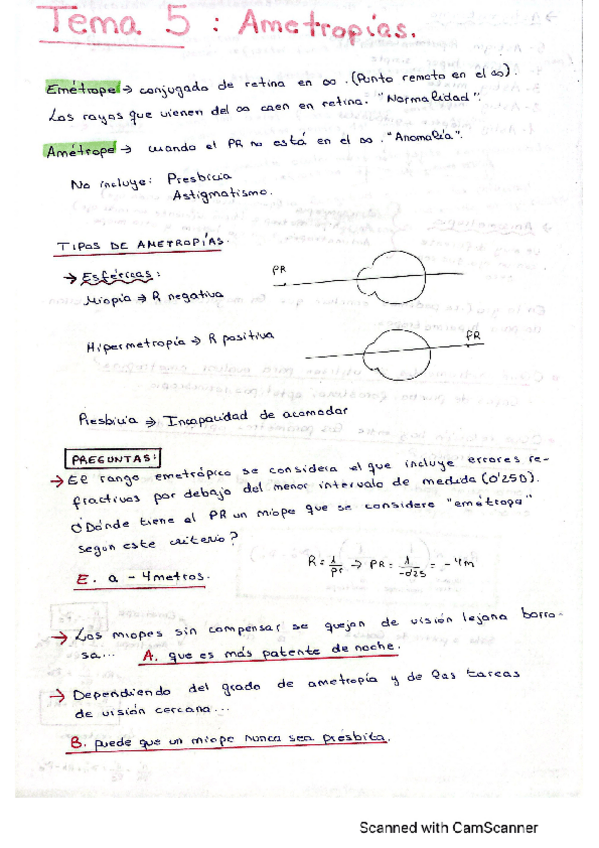 Tema 5 : Ametropías.
Emétrope → conjugado de retina en ∞ . (Punto remoto en el ∞).
Los rayos que vienen del ∞ caen en retina. "Normalidad".
Amétrope → cuando el PR no está en el ∞ . "Anomalía".
No incluye: Presbicia
Astigmatismo.
TIPOS DE AMETROPÍAS.
→ Esféricas :
Miopía → R negativa
PR
Hipermetropía → R positiva
PR
Presbicia ⇒ Incapacidad de acomodar
PREGUNTAS:
→ El rango emetrópico se considera el que incluye errores re-
fractivos por debajo del menor intervalo de medida (0'25D).
¿Dónde tiene el PR un miope que se considere "emétropa"
según este criterio?
R = 1/pr → PR = 1/-0'25 = -4m
E. a - 4metros.
→ Los miopes sin compensar se quejan de visión lejana borro-
sa... A. que es más patente de noche.
→ Dependiendo del grado de ametropía y de las tareas
de visión cercana...
B. puede que un miope nunca sea présbita.
Scanned with CamScanner